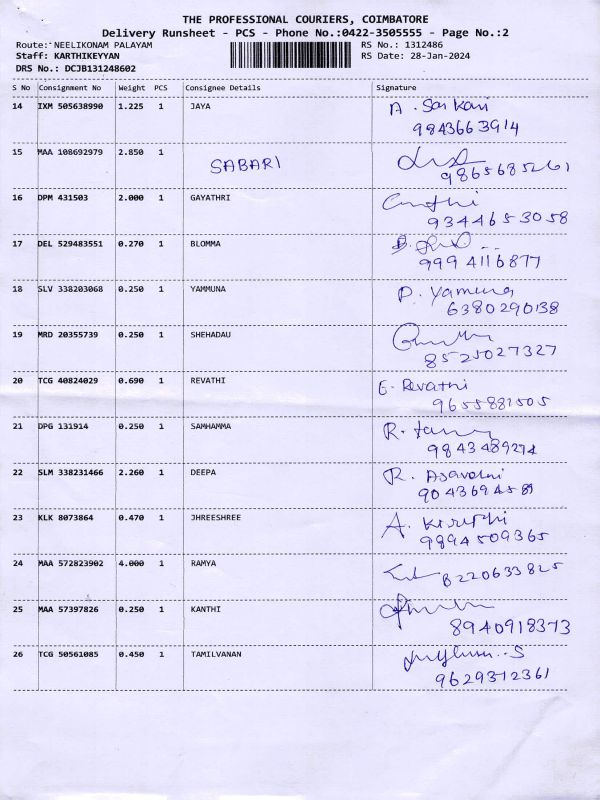 THE PROFESSIONAL COURIERS, COIMBATORE
Delivery Runsheet - PCS - Phone No.:0422-3505555 - Page No.:2
Route: NEELIKONAM PALAYAM RS No.: 1312486
Staff: KARTHIKEYYAN RS Date: 28-Jan-2024
DRS No.: DCJB131248602
S No Consignment No Weight PCS Consignee Details Signature
14 IXM 505638990 1.225 1 JAYA A. Sarkani
9843663914
15 MAA 108692979 2.850 1 SABARI
9865685261
16 DPM 431503 2.000 1 GAYATHRI
9344653058
17 DEL 529483551 0.270 1 BLOMMA
9994116877
18 SLV 338203068 0.250 1 YAMMUNA P. Yamuna
6380290138
19 MRD 20355739 0.250 1 SHEHADAU
8525027327
20 TCG 40824029 0.690 1 REVATHI E. Revathi
9655881505
21 DPG 131914 0.250 1 SAMHAMMA R.
9843489274
22 SLM 338231466 2.260 1 DEEPA R.
9043694589
23 KLK 8073864 0.470 1 JHREESHREE A. Kiruthi
9894509365
24 MAA 572823902 4.000 1 RAMYA
8220633825
25 MAA 57397826 0.250 1 KANTHI
8940918373
26 TCG 50561085 0.450 1 TAMILVANAN
9629312361